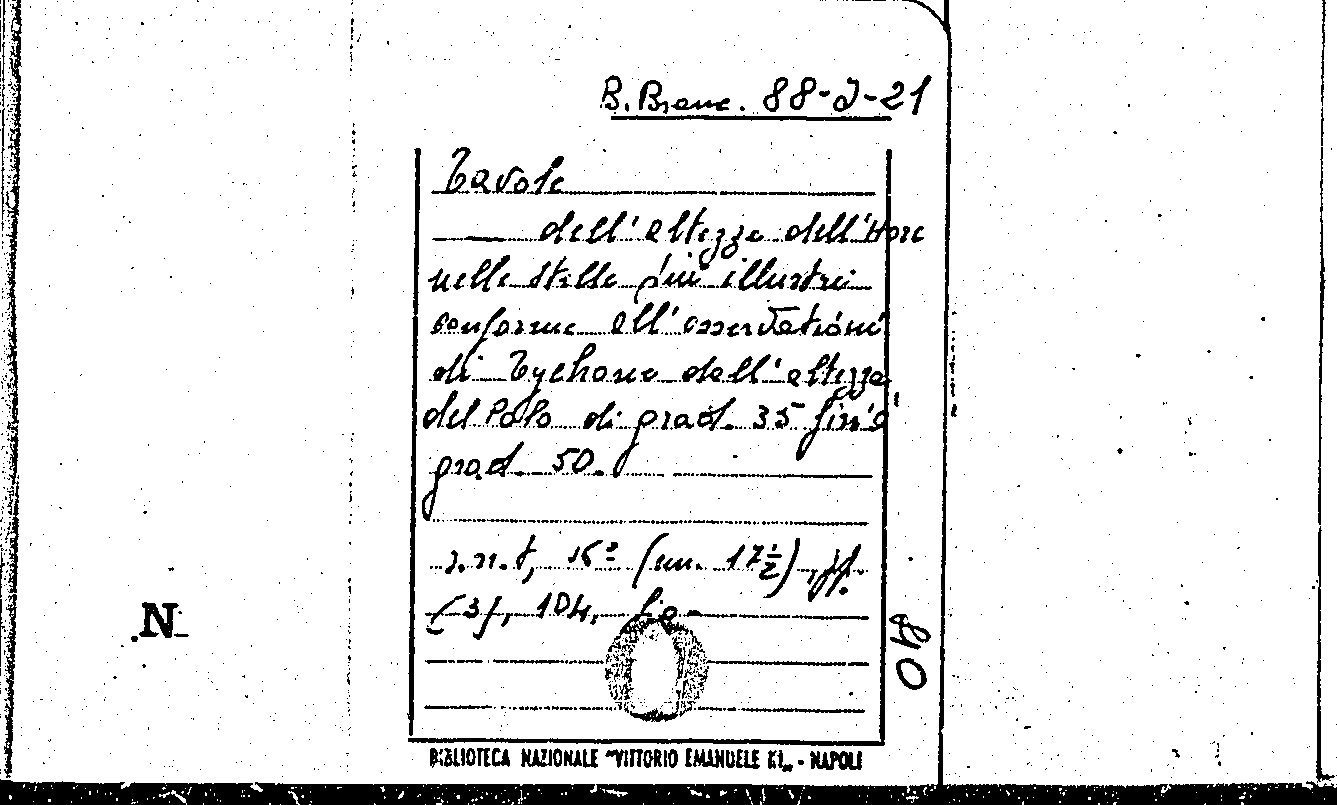 B. Branc. 88-J-21
Tavole
dell'altezza dell'Hore
nelle stelle più illustri
conforme all'osservationi
di Tychone dell'altezza
del Polo di grad. 35 fin'a
grad. 50.
s.n.t, 16° (cm. 17½), ff.
[3], 104.
40
N
BIBLIOTECA NAZIONALE "VITTORIO EMANUELE III„ - NAPOLI